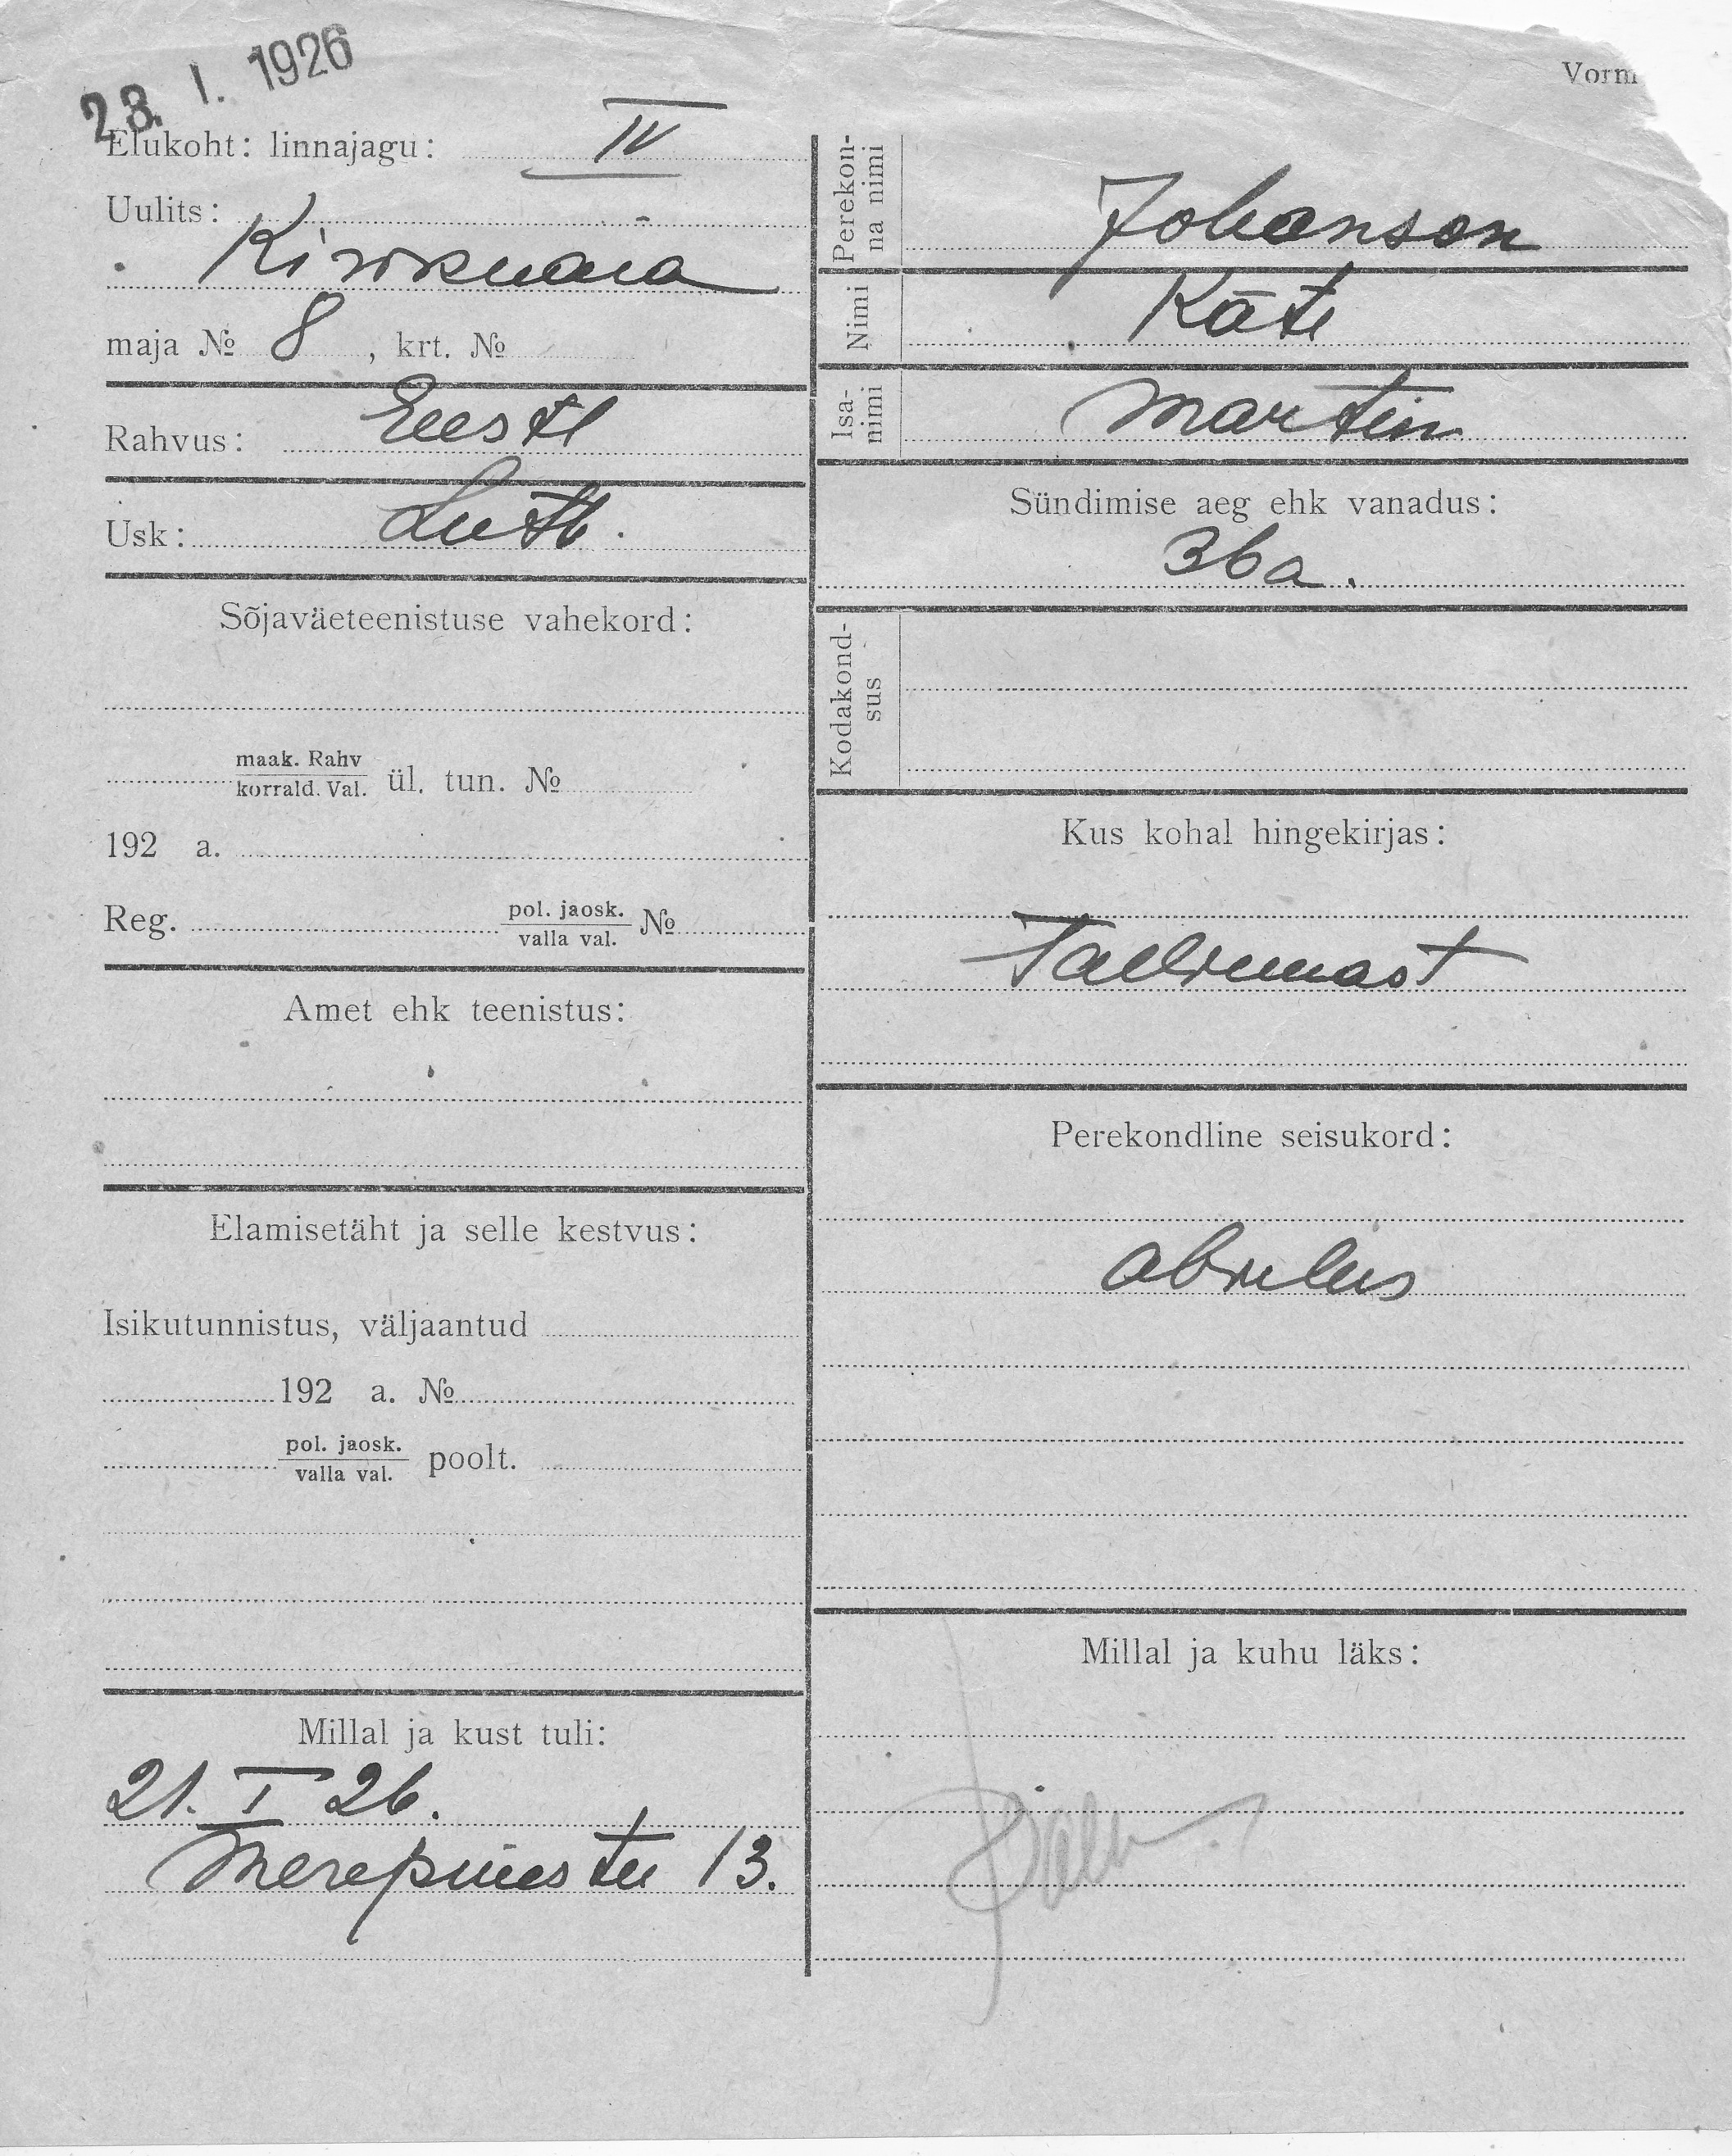 23. I. 1926
Vorm
Elukoht: linnajagu: IV
Uulits:
Kirikuaia
maja № 8 , krt. №
Rahvus: Eesti
Usk: Luth.
Sõjaväeteenistuse vahekord:
maak. Rahv
korrald. Val. ül. tun. №
192 a.
Reg. pol. jaosk. №
valla val.
Amet ehk teenistus:
Elamisetäht ja selle kestvus:
Isikutunnistus, väljaantud
192 a. №
pol. jaosk.
valla val. poolt.
Millal ja kust tuli:
21. I 26.
Merepuiestee 13.
Perekon-
na nimi
Johanson
Nimi
Käte
Isa-
nimi
Martin
Sündimise aeg ehk vanadus:
36 a.
Kodakond-
sus
Kus kohal hingekirjas:
Tallinnast
Perekondline seisukord:
abielus
Millal ja kuhu läks: